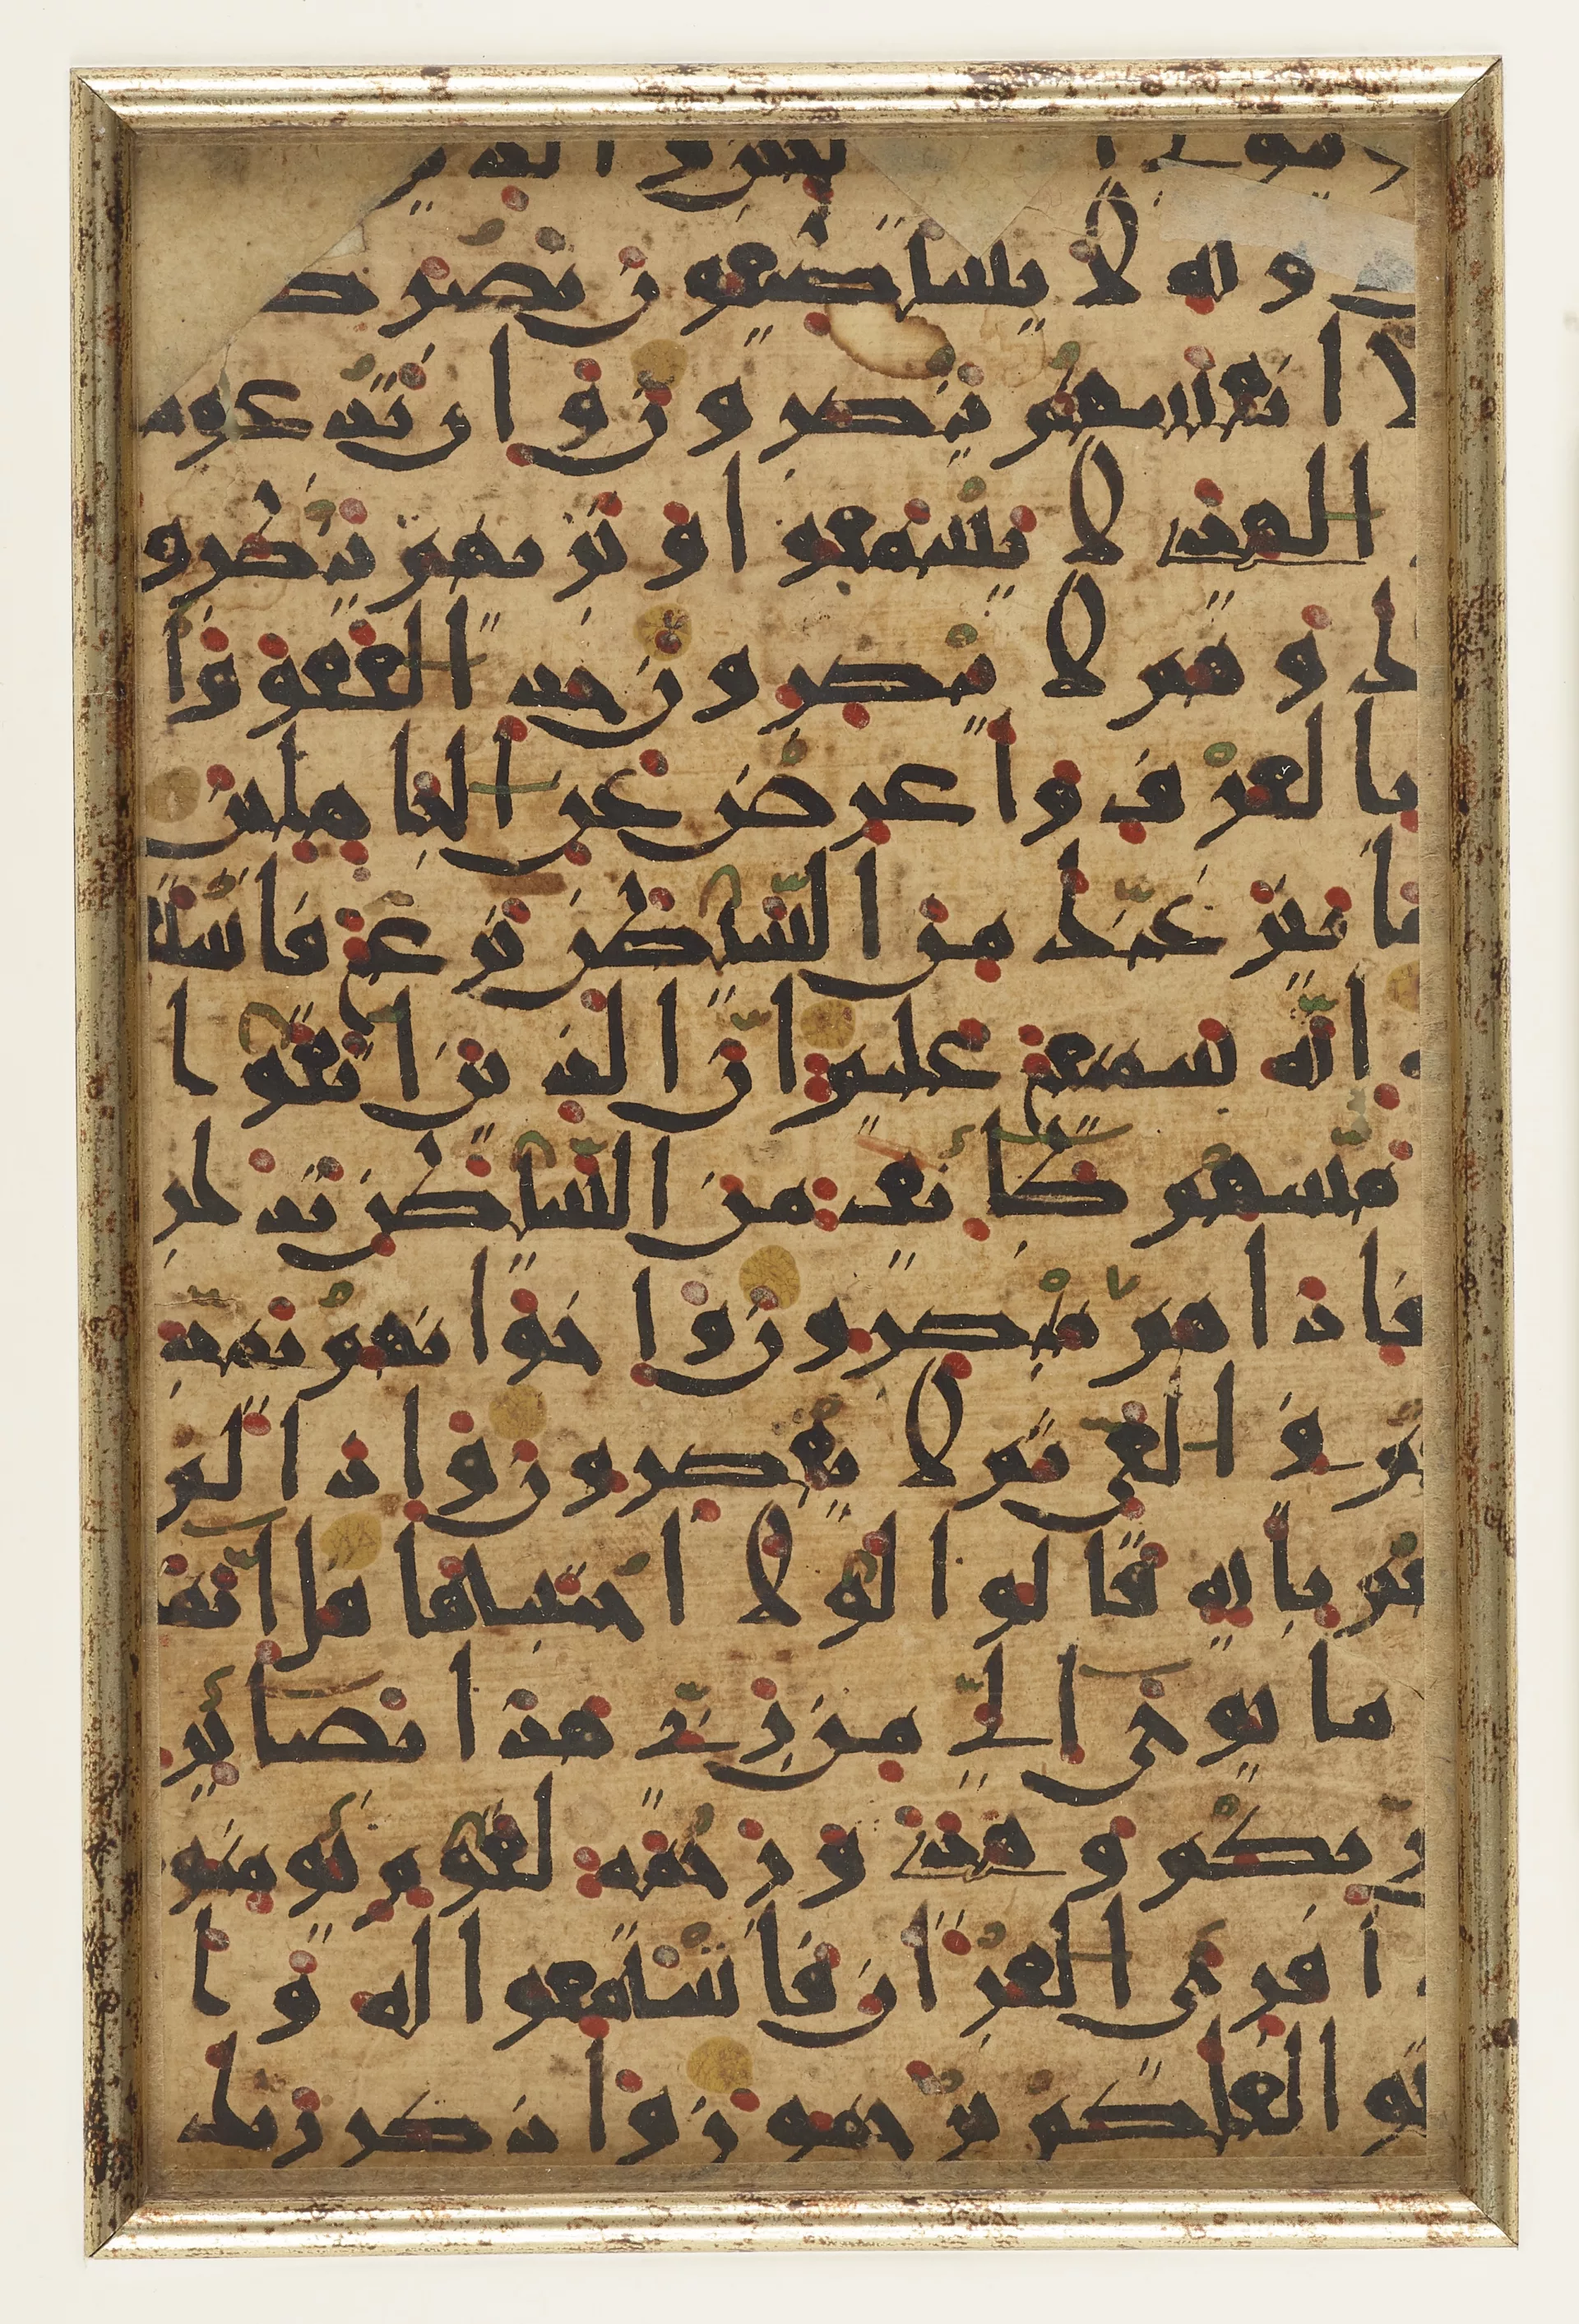 يتولى والذين
دونه لا يستطيعون نصرك
لا انفسهم ينصرون وان تدعوهم
الهدى لا يسمعوا وتريهم ينظرو
ك وهم لا يبصرون خذ العفو وا
بالعرف واعرض عن الجاهلين
ما ينزغنك من الشيطن نزغ فاست
انه سميع عليم ان الذين اتقوا ا
مسهم طائف من الشيطن تذكر
فاذا هم مبصرون واخوانهم يمد
هم في الغي ثم لا يقصرون واذا لم
تهم باية قالوا لولا اجتبيتها قل
ما يوحى الي من ربي هذا بصائر
ربكم وهدى ورحمة لقوم يؤمنو
ا قرى القران فاستمعوا له وا
توا لعلكم ترحمون واذكر ربك